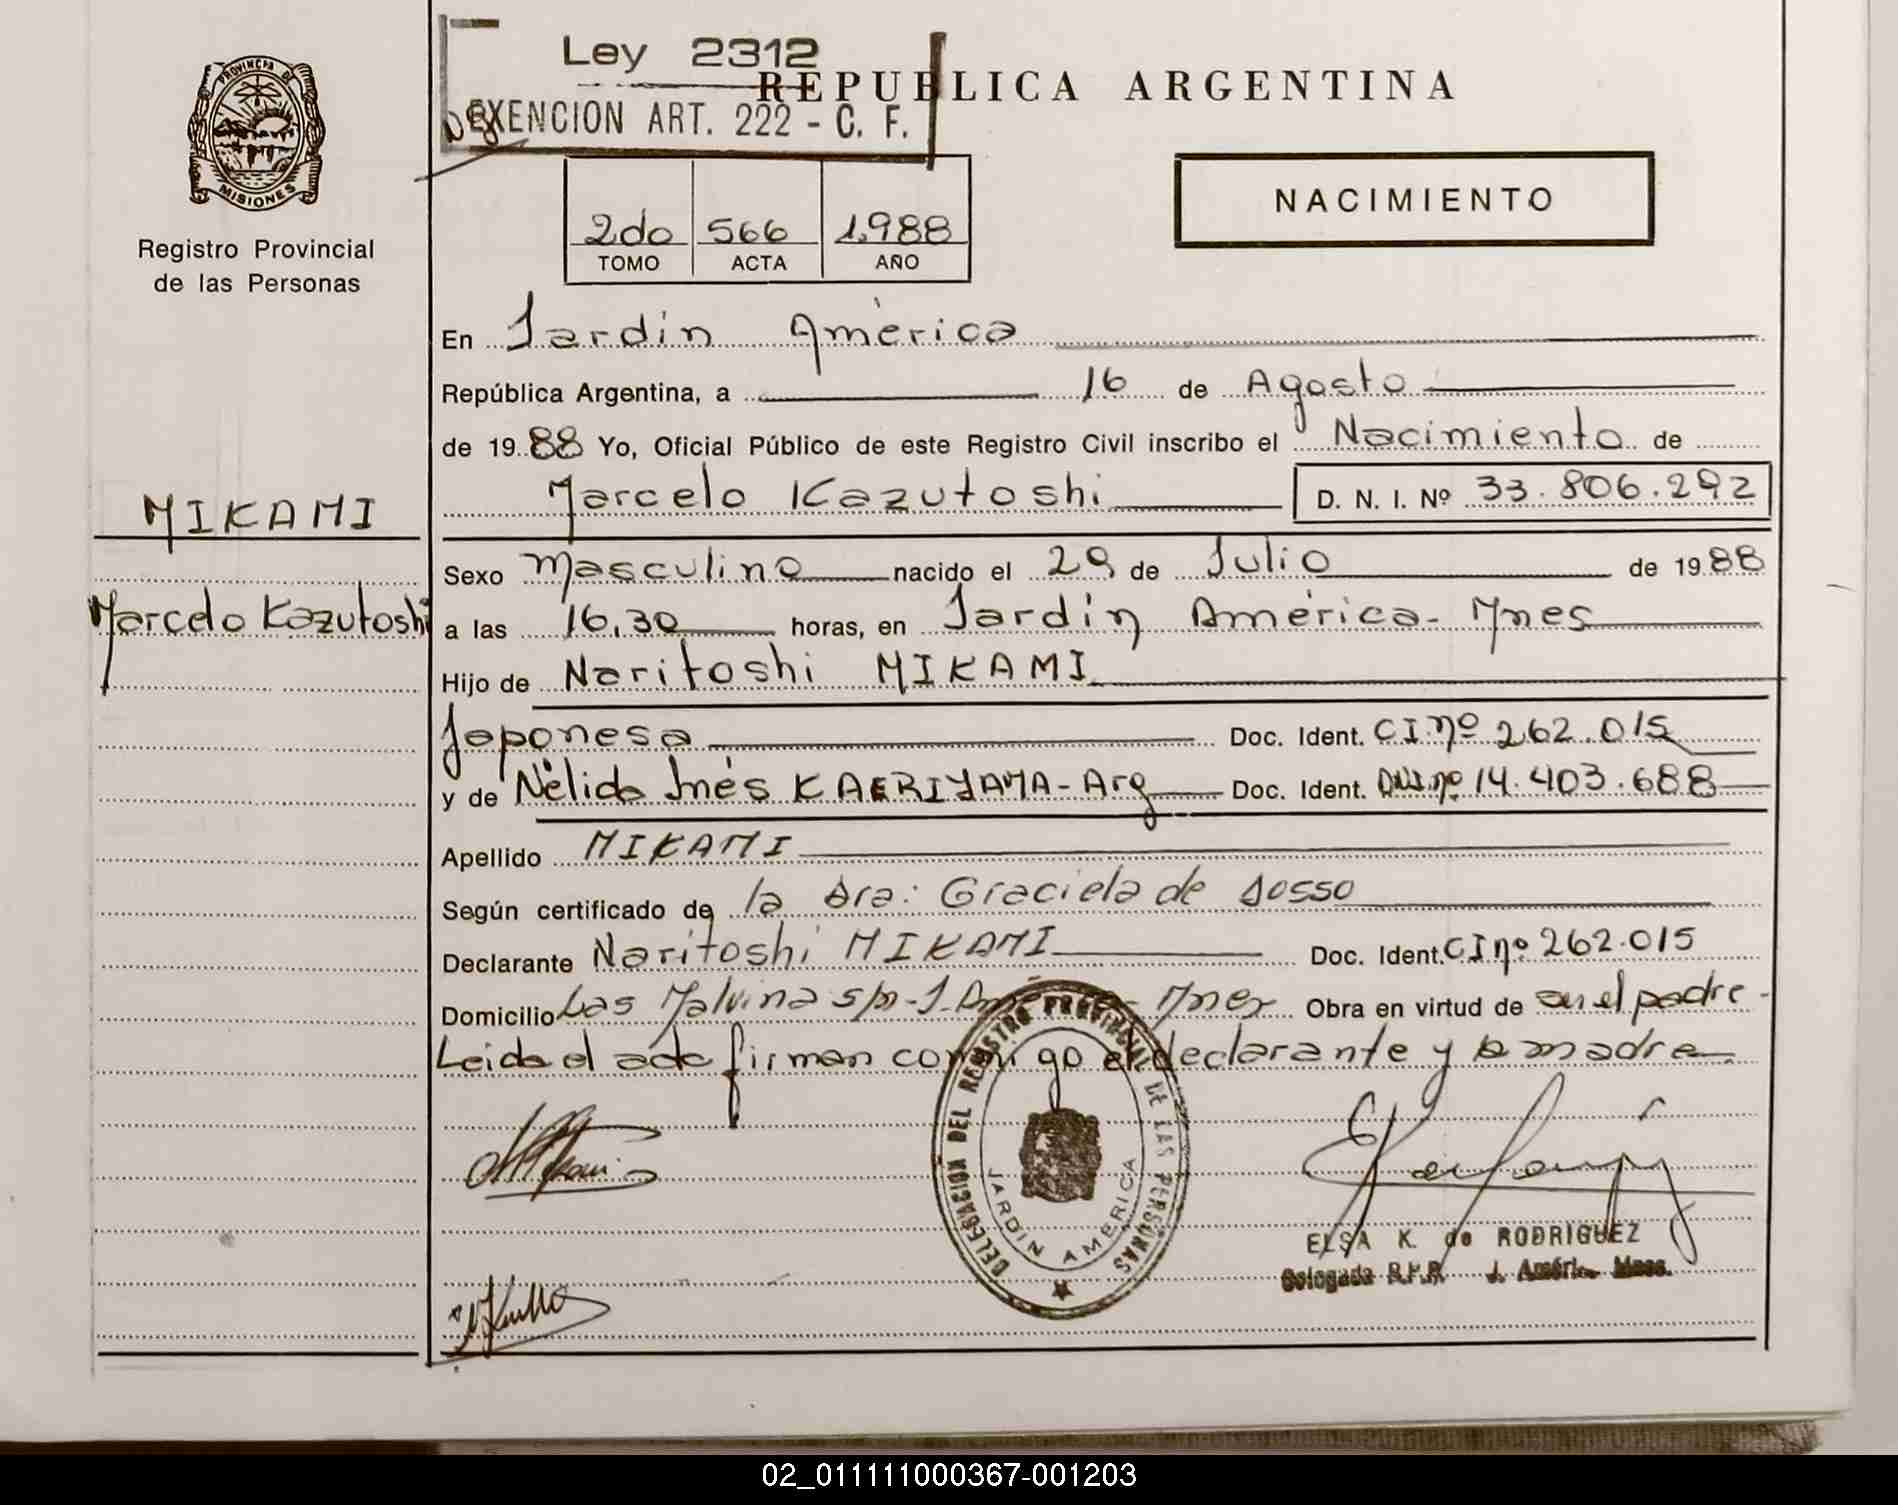 PROVINCIA DE
MISIONES
Registro Provincial
de las Personas
MIKAMI
Marcelo Kazutoshi
Ley 2312
EXENCION ART. 222 - C. F.
REPUBLICA ARGENTINA
2do 566 1.988
TOMO ACTA AÑO
NACIMIENTO
En Jardin América
República Argentina, a 16 de Agosto
de 1988 Yo, Oficial Público de este Registro Civil inscribo el Nacimiento de
Marcelo Kazutoshi D. N. I. Nº 33.806.292
Sexo Masculino nacido el 29 de Julio de 1988
a las 16,30 horas, en Jardin América- Mnes
Hijo de Naritoshi MIKAMI
Japonesa Doc. Ident. CI nº 262.015
y de Nélida Inés KAERIYAMA-Arg Doc. Ident. DNI nº 14.403.688
Apellido MIKAMI
Según certificado de la Dra: Graciela de Sosso
Declarante Naritoshi MIKAMI Doc. Ident. CI nº 262.015
Domicilio Las Malvinas s/n-J. América- Mnes Obra en virtud de en el padre-
Leida el acta firman conmigo el declarante y la madre
DELEGACION DEL REGISTRO PROVINCIAL DE LAS PERSONAS
JARDIN AMERICA
ELSA K. de RODRIGUEZ
Delegada R.P.P. J. América Mnes.
02_011111000367-001203